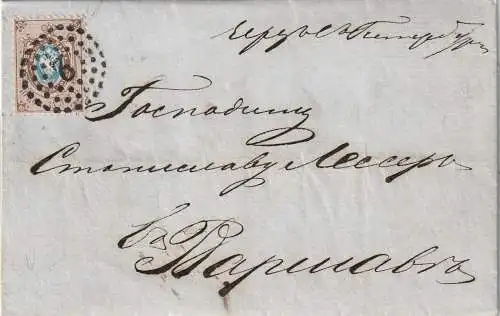 чрезъ С Петербургъ
Господину
Станиславу Лессеръ
въ Варшавѣ